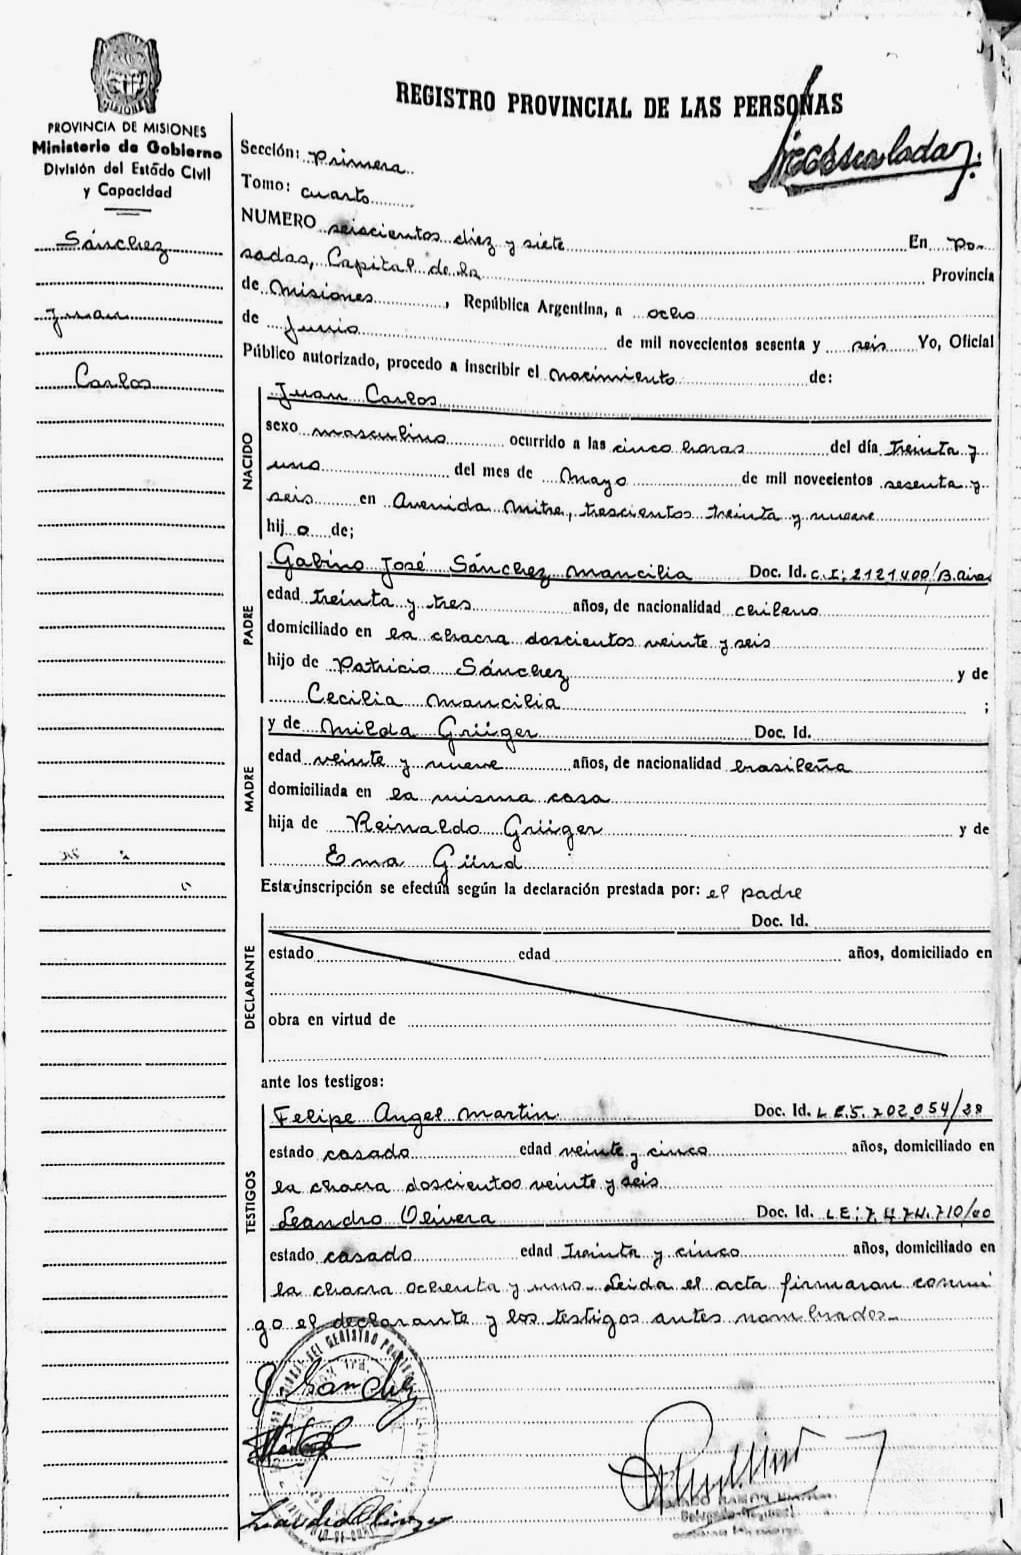 REGISTRO PROVINCIAL DE LAS PERSONAS
PROVINCIA DE MISIONES
Ministerio de Gobierno
División del Estado Civil
y Capacidad
Sánchez
Juan
Carlos
Sección: Primera
Tomo: cuarto
NUMERO seiscientos diez y siete En Po-
sadas, Capital de la Provincia
de Misiones, República Argentina, a ocho
de Junio de mil novecientos sesenta y seis Yo, Oficial
Público autorizado, procedo a inscribir el nacimiento de:
NACIDO
Juan Carlos
sexo masculino ocurrido a las cinco horas del día treinta y
uno del mes de Mayo de mil novecientos sesenta y
seis en Avenida Mitre, trescientos treinta y nueve
hijo de;
PADRE
Gabino José Sánchez Mancilia Doc. Id. C.I: 2121400/B.aires
edad treinta y tres años, de nacionalidad chileno
domiciliado en la chacra doscientos veinte y seis
hijo de Patricio Sánchez y de
Cecilia Mancilia ;
MADRE
y de Milda Grüger Doc. Id.
edad veinte y nueve años, de nacionalidad brasileña
domiciliada en la misma casa
hija de Reinaldo Grüger y de
Ema Günd
Esta inscripción se efectúa según la declaración prestada por: el padre
DECLARANTE
Doc. Id.
estado edad años, domiciliado en
obra en virtud de
ante los testigos:
TESTIGOS
Felipe Angel Martin Doc. Id. L E.5.202.054/38
estado casado edad veinte y cinco años, domiciliado en
la chacra doscientos veinte y seis
Leandro Olivera Doc. Id. L E: 7.474.710/00
estado casado edad treinta y cinco años, domiciliado en
la chacra ochenta y uno- Leida el acta firmaron conmi
go el declarante y los testigos antes nombrados-
G. Sanchez
Leandro Olivera